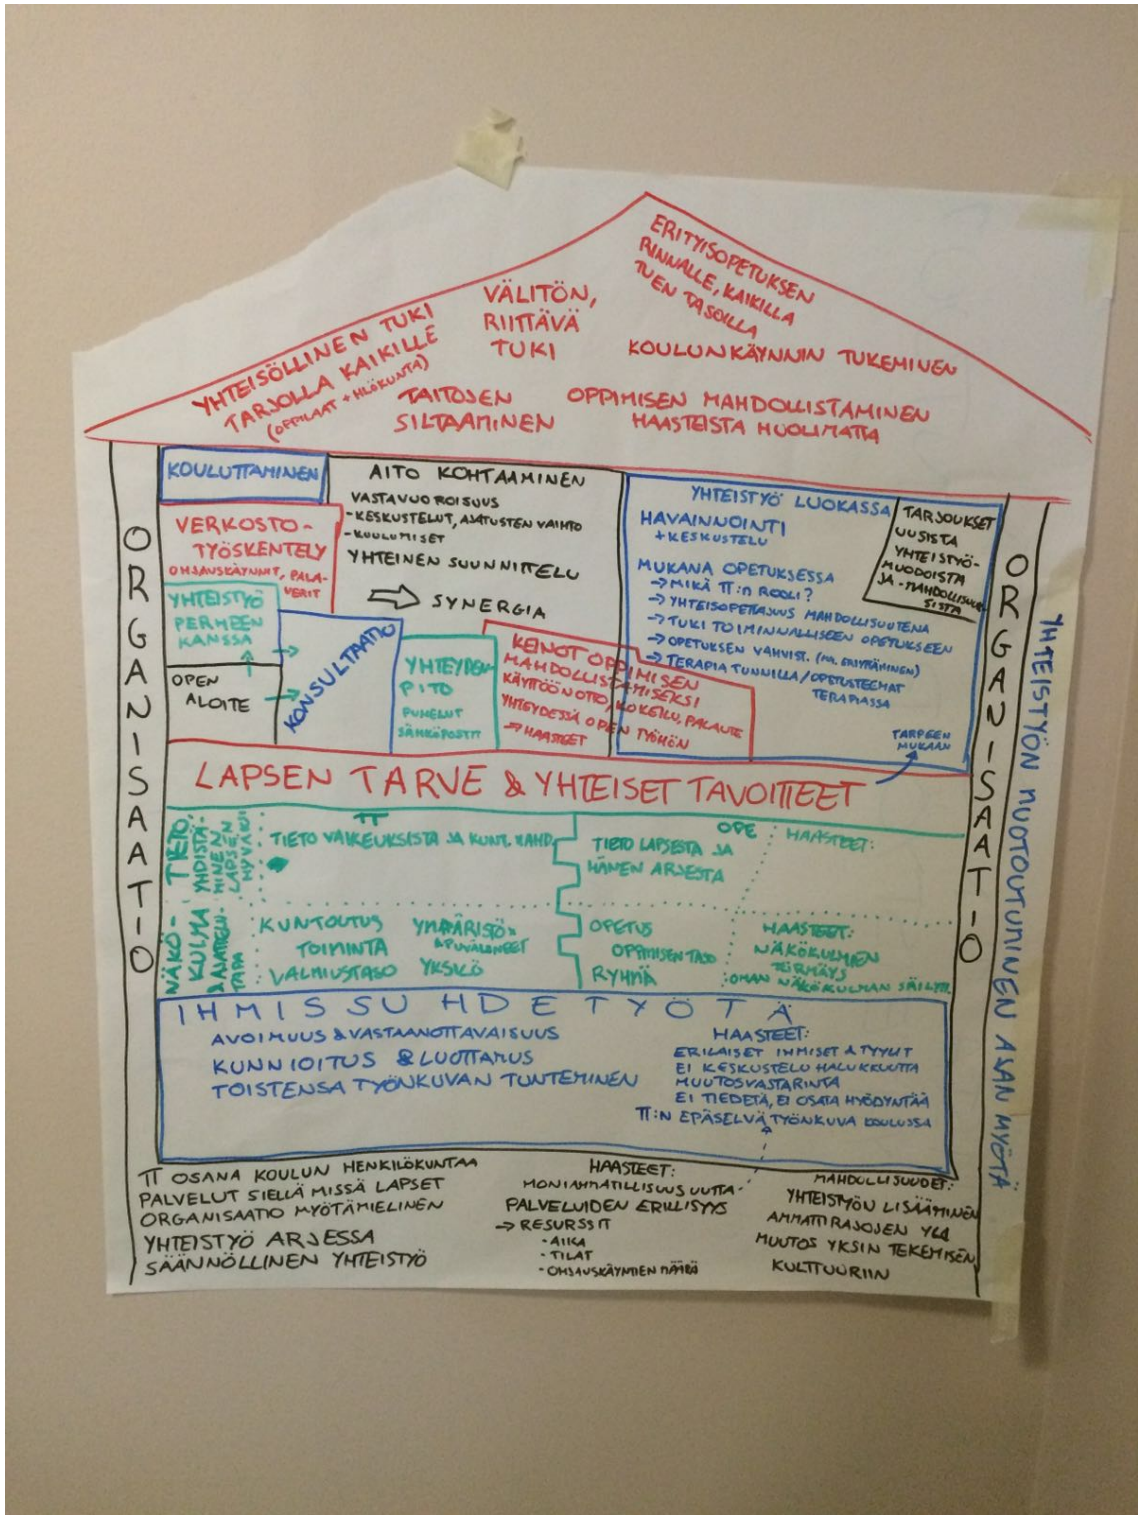 YHTEISÖLLINEN TUKI
TARJOLLA KAIKILLE
(OPPILAAT + HLÖKUNTA)
VÄLITÖN,
RIITTÄVÄ
TUKI
ERITYISOPETUKSEN
RINNALLE, KAIKILLA
TUEN TASOILLA
KOULUNKÄYNNIN TUKEMINEN
TAITOJEN
SILTAAMINEN
OPPIMISEN MAHDOLLISTAMINEN
HAASTEISTA HUOLIMATTA
ORGANISAATIO
KOULUTTAMINEN
VERKOSTO-
TYÖSKENTELY
OHJAUSKÄYNNIT, PALA-
VERIT
YHTEISTYÖ
PERHEEN
KANSSA
OPEN
ALOITE
KONSULTAATIO
AITO KOHTAAMINEN
VASTAVUOROISUUS
-KESKUSTELUT, AJATUSTEN VAIHTO
-KUULUMISET
YHTEINEN SUUNNITTELU
⇒ SYNERGIA
YHTEYDEN-
PITO
PUHELUT
SÄHKÖPOSTIT
KEINOT OPPIMISEN
MAHDOLLISTAMISEKSI
KÄYTTÖÖNOTTO, KOKEILU, PALAUTE
YHTEYDESSÄ OPEN TYÖHÖN
→ HAASTEET
YHTEISTYÖ LUOKASSA
HAVAINNOINTI
+ KESKUSTELU
MUKANA OPETUKSESSA
→ MIKÄ TT:n ROOLI?
→ YHTEISOPETTAJUUS MAHDOLLISUUTENA
→ TUKI TOIMINNALLISEEN OPETUKSEEN
→ OPETUKSEN VAHVIST. (ERIYTTÄMINEN)
→ TERAPIA TUNNILLA / OPETUSTEEMAT
TERAPIASSA
TARPEEN
MUKAAN
TARJOUKSET
UUSISTA
YHTEISTYÖ-
MUODOISTA
JA -MAHDOLLISUUK-
SISTA
ORGANISAATIO
YHTEISTYÖN MUOTOUTUMINEN AJAN MYÖTÄ
LAPSEN TARVE & YHTEISET TAVOITTEET
TIETO,
YHDISTÄ-
MINEN
LAPSEN
HYVÄKSI
TT
TIETO VAIKEUKSISTA JA KUNT. MAHD.
OPE
TIETO LAPSESTA JA
HÄNEN ARJESTA
HAASTEET:
NÄKÖ-
KULMA
& AJATTELU-
TAPA
KUNTOUTUS
TOIMINTA
VALMIUSTASO
YMPÄRISTÖ &
APUVÄLINEET
YKSILÖ
OPETUS
OPPIMISEN TASO
RYHMÄ
HAASTEET:
NÄKÖKULMIEN
TÖRMÄYS
OMAN NÄKÖKULMAN SÄILYTT.
IHMISSUHDETYÖTÄ
AVOIMUUS & VASTAANOTTAVAISUUS
KUNNIOITUS & LUOTTAMUS
TOISTENSA TYÖNKUVAN TUNTEMINEN
HAASTEET:
ERILAISET IHMISET & TYYLIT
EI KESKUSTELU HALUKKUUTTA
MUUTOSVASTARINTA
EI TIEDETÄ, EI OSATA HYÖDYNTÄÄ
TT:N EPÄSELVÄ TYÖNKUVA KOULUSSA
TT OSANA KOULUN HENKILÖKUNTAA
PALVELUT SIELLÄ MISSÄ LAPSET
ORGANISAATIO MYÖTÄMIELINEN
YHTEISTYÖ ARJESSA
SÄÄNNÖLLINEN YHTEISTYÖ
HAASTEET:
MONIAMMATILLISUUS UUTTA
PALVELUIDEN ERILLISYYS
→ RESURSSIT
- AIKA
- TILAT
- OHJAUSKÄYNTIEN MÄÄRÄ
MAHDOLLISUUDET:
YHTEISTYÖN LISÄÄMINEN
AMMATTIRAJOJEN YLI
MUUTOS YKSIN TEKEMISEN
KULTTUURIIN